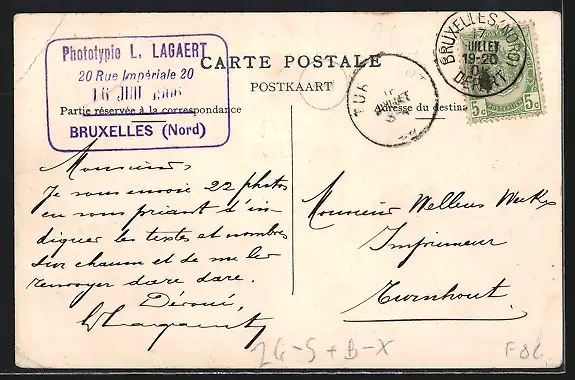 Phototypie L. LAGAERT
20 Rue Impériale 20
16 JUIL 1906
BRUXELLES (Nord)
CARTE POSTALE
POSTKAART
Partie réservée à la correspondance
Adresse du destina
BRUXELLES (NORD)
7
JUILLET
19-20
DEPART
5c 5c
TUR
JUILLET
Monsieur
Je vous envoie 22 photos
en vous priant d'in-
diquer les textes et nombres
sur chacun et de me les
renvoyer dare dare.
Dévoué,
Monsieur Wellens
Imprimeur
Turnhout
24-5+B-X
F 06